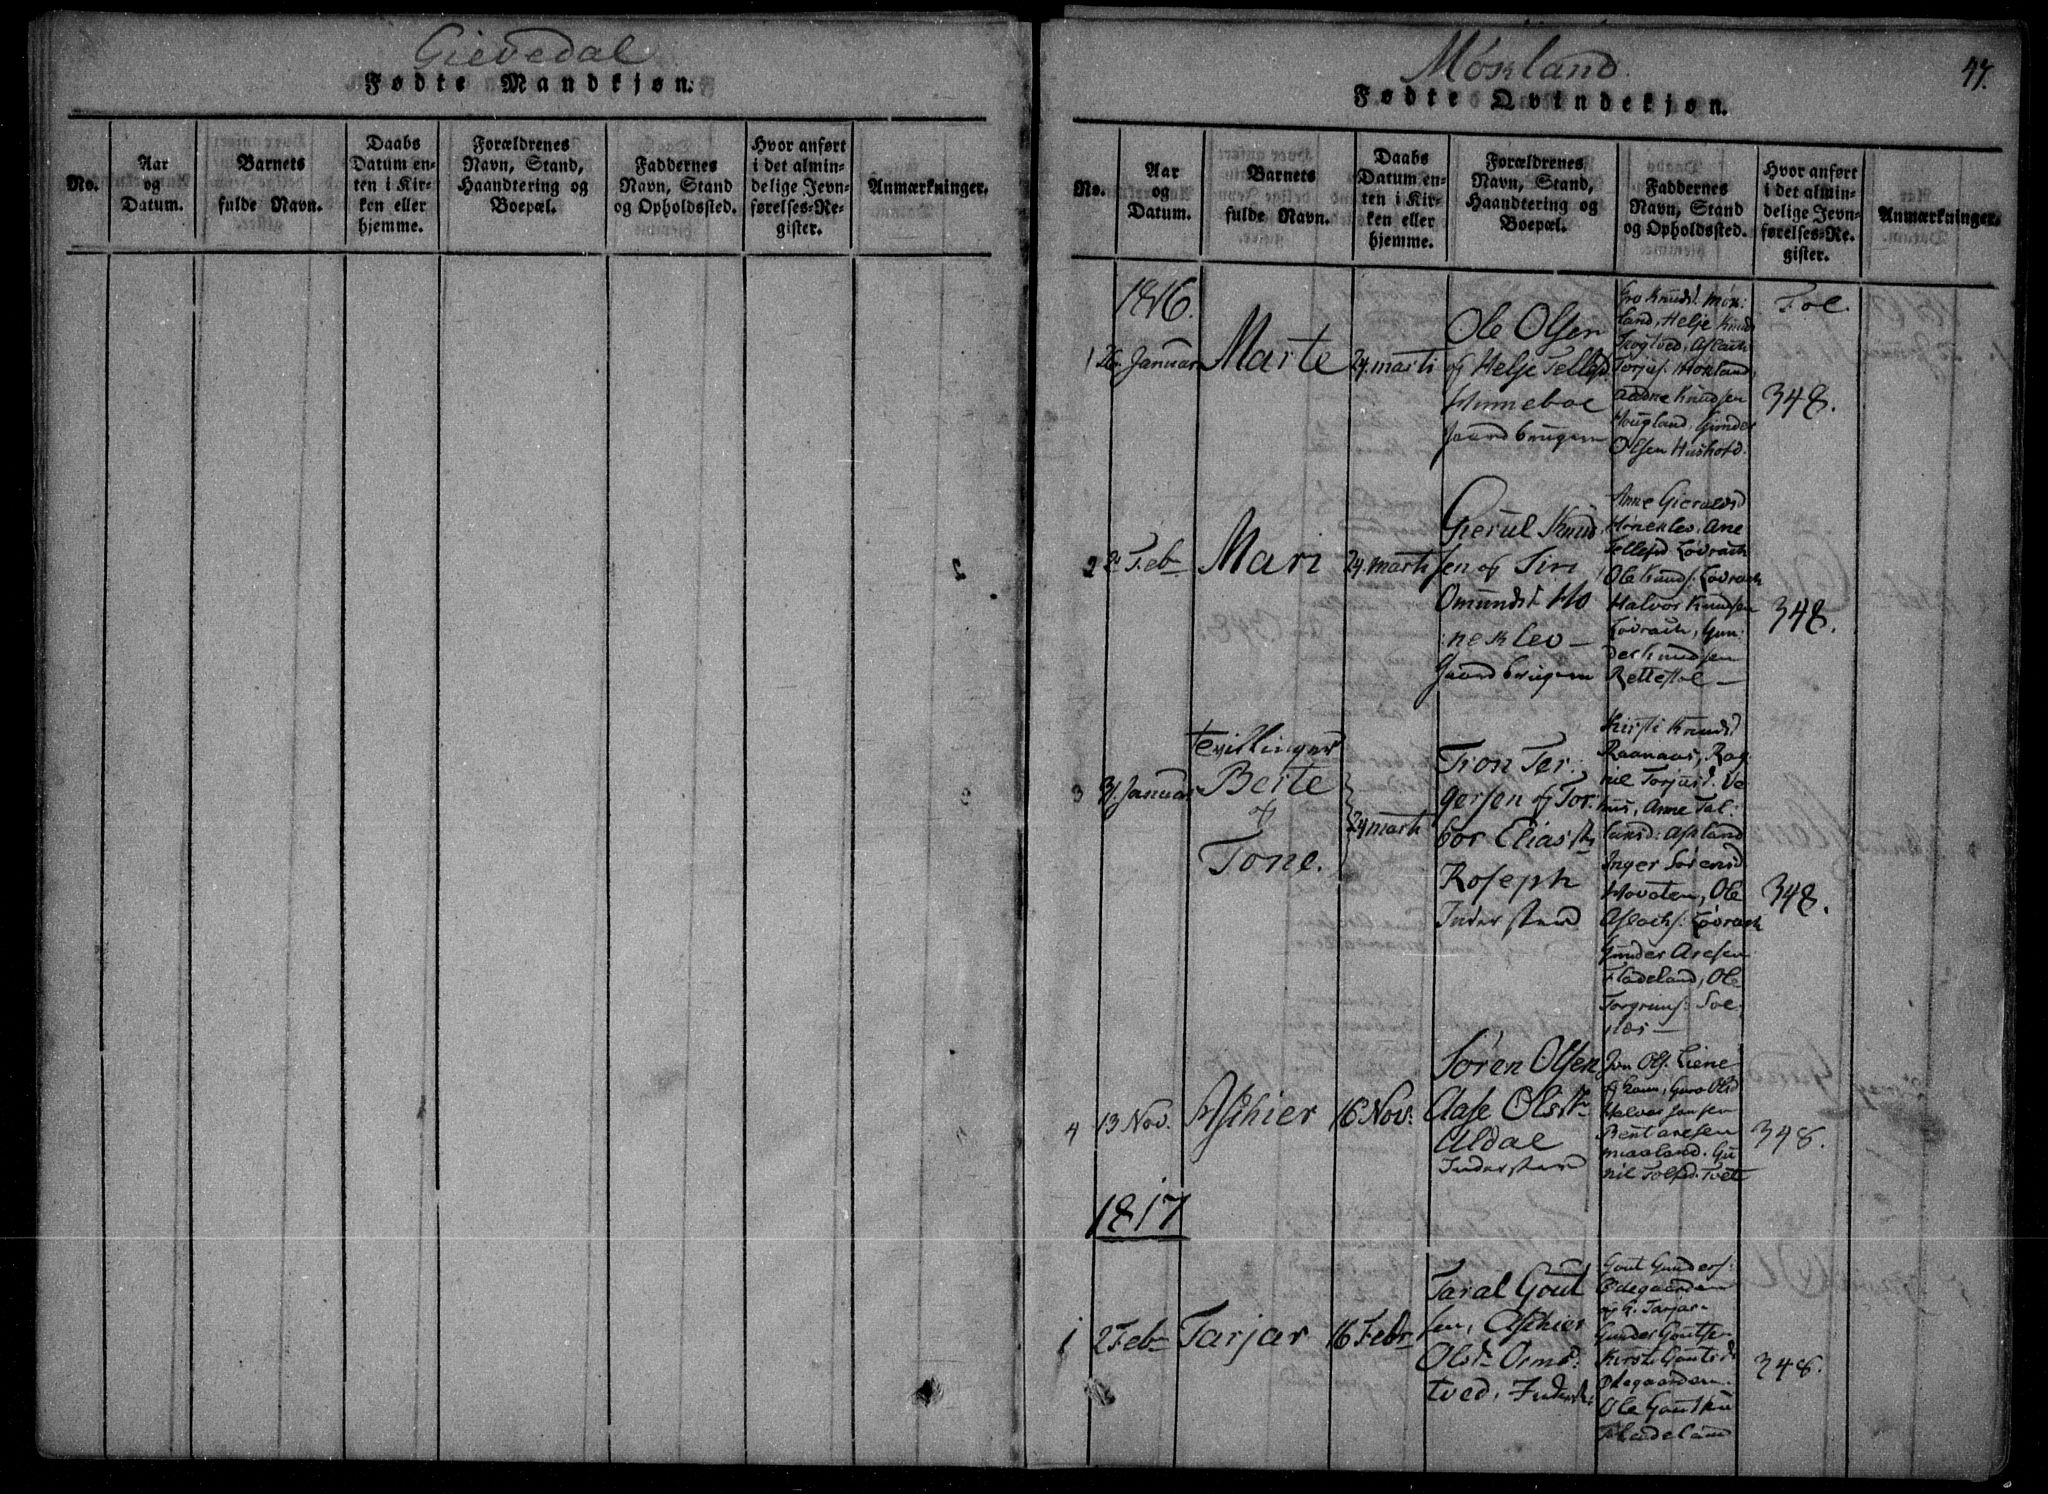 Gievedal
Fødte Mandkjøn.
No.
Aar
og
Datum.
Barnets
fulde Navn.
Daabs
Datum en-
ten i Kir-
ken eller
hjemme.
Forældrenes
Navn, Stand,
Haandtering og
Boepæl.
Faddernes
Navn, Stand
og Opholdssted.
Hvor anført
i det almin-
delige Jevn-
førelses-Re-
gister.
Anmærkninger.
Møxland
47.
Fødte Qvindekjøn.
No.
Aar
og
Datum.
Barnets
fulde Navn.
Daabs
Datum en-
ten i Kir-
ken eller
hjemme.
Forældrenes
Navn, Stand,
Haandtering og
Boepæl.
Faddernes
Navn, Stand
og Opholdssted.
Hvor anført
i det almin-
delige Jevn-
førelses-Re-
gister.
Anmærkninger.
1816.
1
26. Januar
Marte
24. marti
Ole Olsen
og Helje Tellefsd.
Hunneboe
Gaardbrugere
Gro Knudsd. Møx:
land, Helje Knuds
Aslach
Torjus. Moxland,
Aadne Knudsen
Hougland, Gunder
Olsen Hushold.
Fol.
348.
2
2 Feb
Mari
24. marti
Gierul Knud
sen og Siri
Omundsd. Ho
nexlev –
Gaardbrugere
Anne Gierulsd
Honexlev, Ane
Tellefsd Løvrach
Ole Knuds. Løvrach
Halvor Knudsen
Løvrach, Gun:
der Knudsen
Rettestol –
348.
3
31. Januar
tvillinger
Berte
og
Tone.
24 marti
Tron Ter:
gersen og Tor:
bor Eliasdtr
Roseph
Inderster
Kirsti Knudsd
Raanaas, Rag
nil Torjusd. Ve
hus, Anne Tal:
laksd: Askland
Inger Sørensd
Hovaten, Ole
Aslachs. Løvrach
Gunder Aresen
Fladeland, Ole
Torgrims: Sol
næs –
348.
4
13 Nov.
Aschier
16 Nov.
Søren Olsen
Aase Olsdtr
Aldal
Inderster
Jon Ols. Liene
og kone, Guro Olsd
Halvor Jensen
Bent Aresen
Maaland. Gu
nil Tolfsd. Tvet
348.
1817
1
2 Feb
Tarjar
16 Febr
Taral Gout
sen, Aschier
Olsd. Orms:
tved, Inderst:
Gout Gunders:
Ødegaarden
og k. Tarjar
Gunder Goutsen
Kirsti Goutsd
Ødegaarden.
Ole
Fladeland
348.